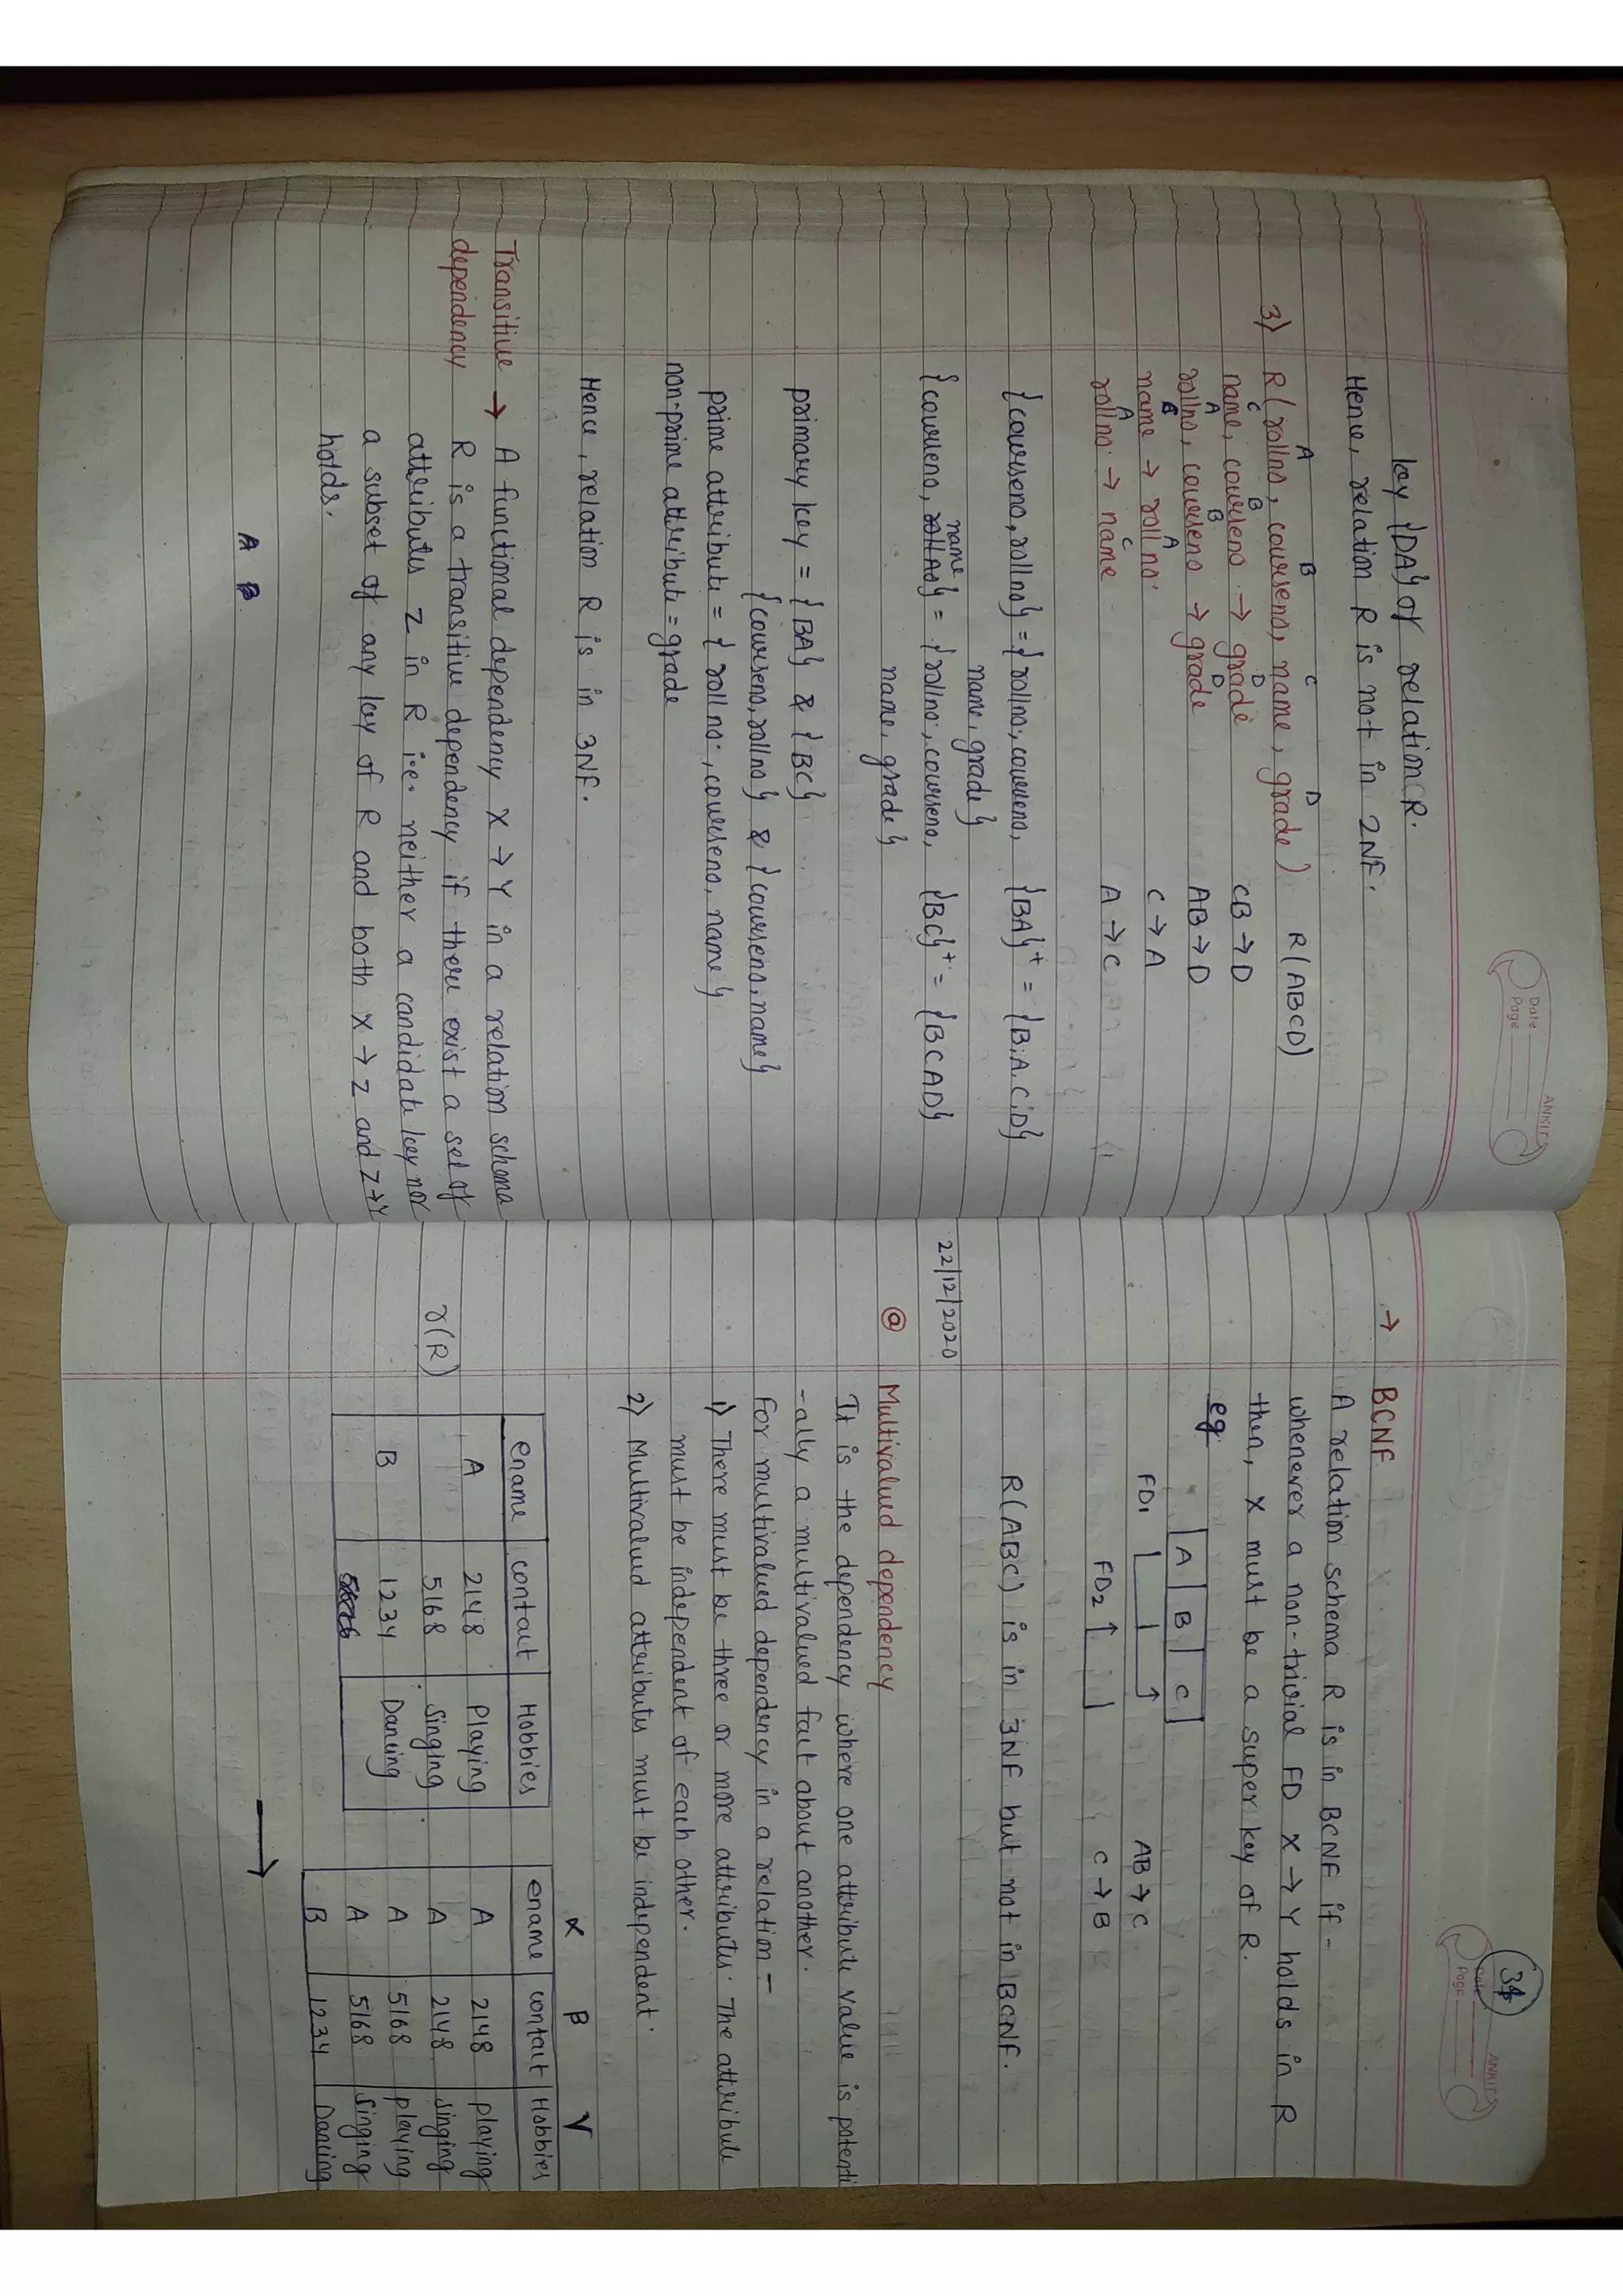 Date
Page
ANKIT
key {DA} of relation R.
Hence, relation R is not in 2NF.
A B C D
3) R(rollno, courseno, name, grade) R(ABCD)
C B D
name, courseno → grade CB→D
A B D
rollno, courseno → grade AB→D
B A
name → rollno. C→A
A C
rollno. → name A→C
{courseno, rollno} = {rollno, courseno, {BA}+ = {B,A,C,D}
name, grade}
name
{courseno, rollno} = {rollno., courseno, {BC}+ = {BCAD}
name, grade}
primary key = {BA} & {BC}
{courseno, rollno} & {courseno, name}
prime attribute = {rollno., courseno, name}
non-prime attribute = grade
Hence, relation R is in 3NF.
Transitive → A functional dependency X→Y in a relation schema
dependency R is a transitive dependency if there exist a set of
attributes Z in R i.e. neither a candidate key nor
a subset of any key of R and both X→Z and Z→Y
holds.
A B
34
Date
Page
ANKIT
→ BCNF
A relation schema R is in BCNF if -
whenever a non-trivial FD X→Y holds in R
then, X must be a super key of R.
eg.
A B C
FD1 AB→C
FD2 C→B
R(ABC) is in 3NF but not in BCNF.
22/12/2020
@ Multivalued dependency
It is the dependency where one attribute value is potenti
-ally a multivalued fact about another.
For multivalued dependency in a relation -
1) There must be three or more attributes. The attribute
must be independent of each other.
2) Multivalued attributes must be independent.
α β γ
r(R)
ename contact Hobbies
A 2148 Playing
5168 Singing
B 1234 Dancing
→
ename contact Hobbies
A 2148 playing
A 2148 singing
A 5168 playing
A 5168 singing
B 1234 Dancing